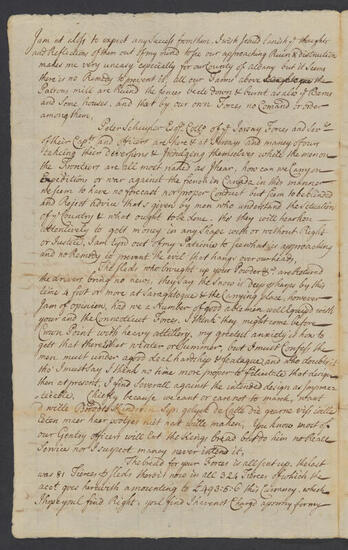 I am at a loss to expect any Success from them, I wish I could banish y.e thoughts
and Reflections of them out of my mind to see our approaching Ruin & distruction
makes me very uneasy especially for our County of Albany but it seems
there is no Remedy to prevent it, all our Farms above the
Patroons mill are Ruind the fences beate down & burnt as also y.e Barns
and Some houses, and that by our own Forces no Comand or order
among them,
Peter Schuyler Esq.r Coll.o of y.e Jersey Forces and
of their Cap.ts and officers are there & at Albany and many of our
taking their Diversions & Indulging themselves while the men on
the Frontiers are all most naked as I hear, how can we Carry on
Expeditions or war against the french in Canada in this manner
we seem to have no forecast nor proper Conduct, but seem to be blinded
and Reject advice that's given by men who understand the Situation
of y.e Country & what ought to be done, tho they will hearken
attentively to gett money in any Shape with or without Right
or Justice, I am tyrd out of my Patience to see what is approaching
and no Remedy to prevent the evil that hangs over our heads,
The Sleds who brought up your Powder &c are Returned
the drivers bring no news, they say the Snow is deep perhaps by this
time 4 foot or more at Saraghtogue & the Carrying place, however
I am of opinion, had we a Number of good able men well Joynd with
your and the Connecticut Forces, I think they might come before
Crown Point with heavy artillery, my greatest anxiety is how to
gett that there either winter or Summer, but I must Confess the
men must under a good deal hardship & fteague, and who doubts it
tho' I must say I think no time more proper to facilitate that design
then at present, I find Severall against the intended design as Impract-
icable, Chiefly because we cant or care not to march, what
d wille
eeten maer haer wolyes niet nat wille maken, You know most of
our Gentry officers will Eat the Kings bread but do him no Reale
Service nor I suspect many never intend it,
The bread for your Forces is all sent up, the last
was 81 Tierces & Sleds there is now in all 324 Tierces of which the
acct goes herewith amounting to £493:5:6 this Currency, which
I hope you'l find Right, you'l find I have not Chargd a penny for my